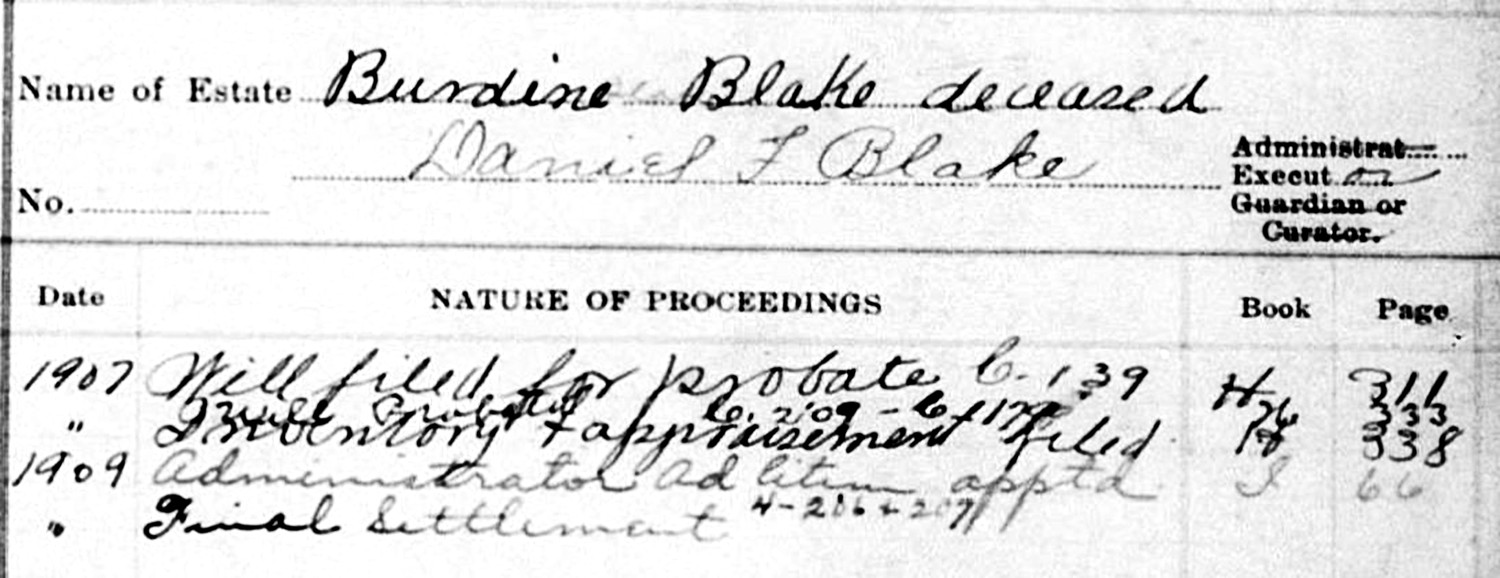 Name of Estate Burdine Blake deceased
Daniel F Blake
Administrat
Execut or
No.
Guardian or
Curator.
Date NATURE OF PROCEEDINGS Book Page
1907 Will filed for probate C. 139 H 311
Will Probated C. 209 - C 333
" Inventory & appraisement filed H 338
1909 Administrator ad litem apptd I 66
" Final Settlement 4-206 & 207